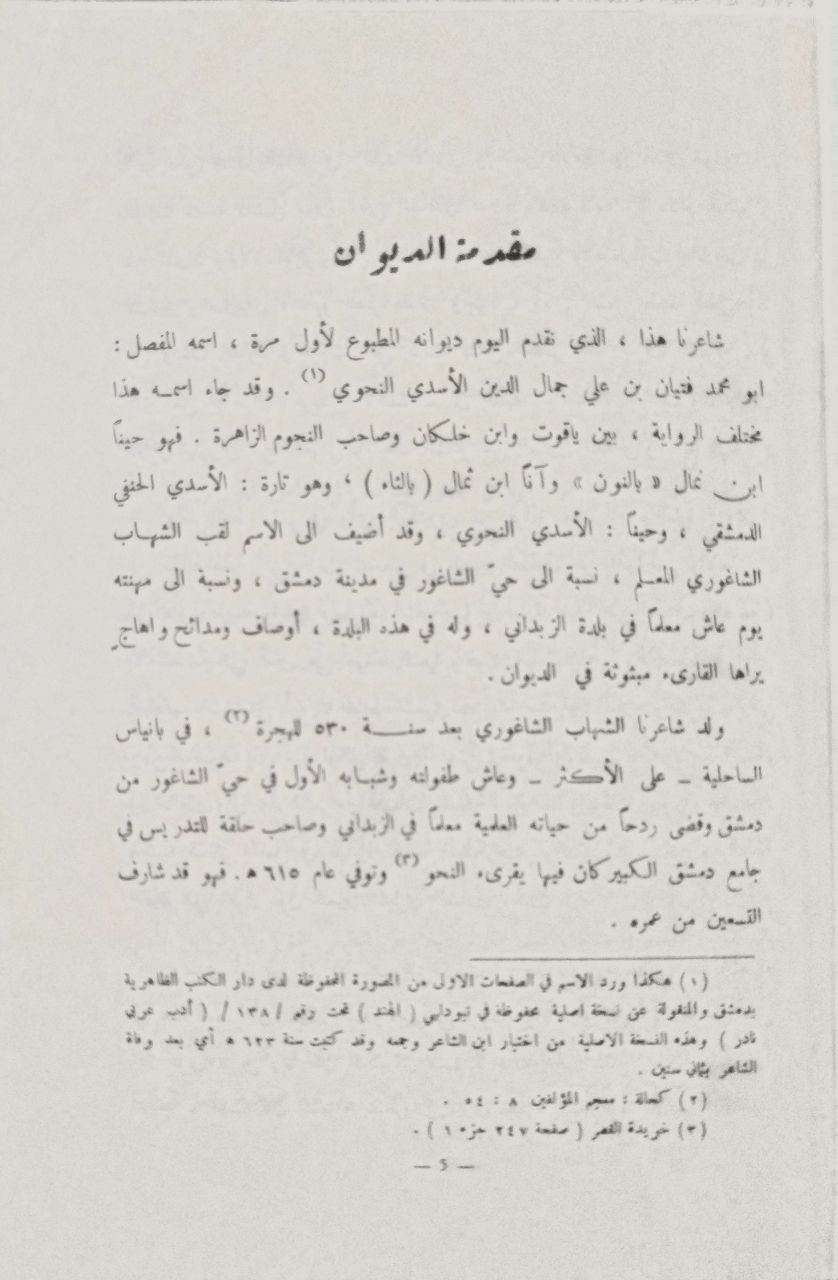 مقدمة الديوان
شاعرنا هذا ، الذي نقدم اليوم ديوانه المطبوع لأول مرة ، اسمه المفصل :
ابو محمد فتيان بن علي جمال الدين الأسدي النحوي (١) . وقد جاء اسمـه هذا
مختلف الرواية ، بين ياقوت وابن خلكان وصاحب النجوم الزاهرة . فهو حيناً
ابن نمال « بالنون » وآناً ابن ثمال ( بالثاء ) ، وهو تارة : الأسدي الحنفي
الدمشقي ، وحيناً : الأسدي النحوي ، وقد أضيف الى الاسم لقب الشهـاب
الشاغوري المعـلم ، نسبة الى حيّ الشاغور في مدينة دمشق ، ونسبة الى مهنته
يوم عاش معلماً في بلدة الزبداني ، وله في هذه البلدة ، أوصاف ومدائح واهاجٍ
يراها القارىء مبثوثة في الديوان .
ولد شاعرنا الشهاب الشاغوري بعد سنـــة ٥٣٠ للهجرة (٢) ، في بانياس
الساحلية ـ على الأكثر ـ وعاش طفولته وشبـابه الأول في حيّ الشاغور من
دمشق وقضى ردحاً من حياته العلمية معلماً في الزبداني وصاحب حلقة للتدريس في
جامع دمشق الكبير كان فيها يقرىء النحو (٣) وتوفي عام ٦١٥ ه . فهو قد شارف
التسعين من عمره .
(١) هكذا ورد الاسم في الصفحات الاولى من المصورة المحفوظة لدى دار الكتب الظاهرية
بدمشق والمنقولة عن نسخة اصلية محفوظة في نيودلهي ( الهند ) تحت رقم / ١٣٨ / ( أدب عربي
نادر ) وهذه النسخة الاصلية من اختيار ابن الشاعر وجمعه وقد كتبت سنة ٦٢٣ ه أي بعد وفاة
الشاعر بثماني سنين .
(٢) كحالة : معجم المؤلفين ٨ : ٥٤ .
(٣) خريدة القصر ( صفحة ٢٤٧ جزء ١ ) .
— 5 —